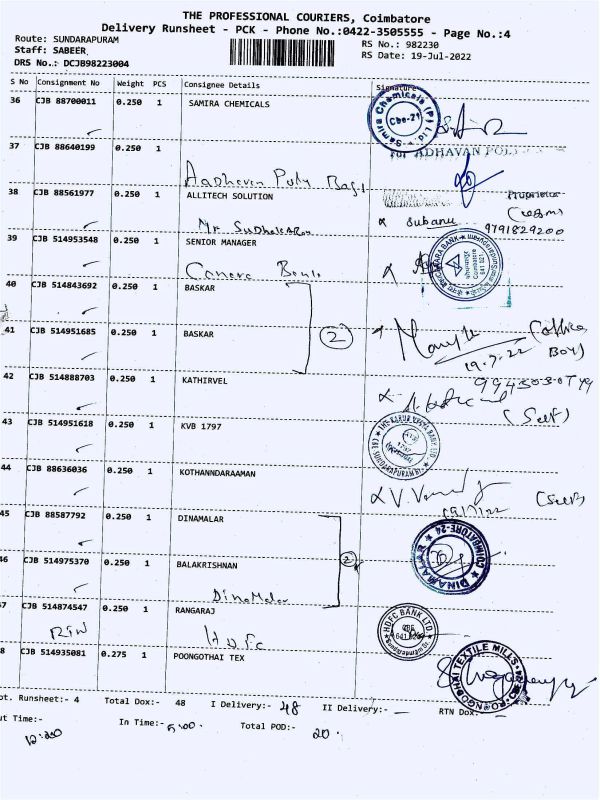 THE PROFESSIONAL COURIERS, Coimbatore
Delivery Runsheet - PCK - Phone No.:0422-3505555 - Page No.:4
Route: SUNDARAPURAM RS No.: 982230
Staff: SABEER RS Date: 19-Jul-2022
DRS No.: DCJB98223004
S No Consignment No Weight PCS Consignee Details Signature
36 CJB 88700011 0.250 1 SAMIRA CHEMICALS
Samira Chemicals (P) Ltd. Cbe-21
37 CJB 88640199 0.250 1 for ADHAVAN POLY
Aadhavan Poly Bags
38 CJB 88561977 0.250 1 ALLITECH SOLUTION
Proprietor
Mr. Sudhakaran 9791829200
39 CJB 514953548 0.250 1 SENIOR MANAGER
CANARA BANK Coimbatore 641 021
Canara Bank
40 CJB 514843692 0.250 1 BASKAR
41 CJB 514951685 0.250 1 BASKAR 2 (office Boy)
19.7.22
42 CJB 514888703 0.250 1 KATHIRVEL
(Self)
43 CJB 514951618 0.250 1 KVB 1797
THE KARUR VYSYA BANK LTD
44 CJB 88636036 0.250 1 KOTHANNDARAAMAN
(Self)
45 CJB 88587792 0.250 1 DINAMALAR
DINAMALAR COIMBATORE-24
46 CJB 514975370 0.250 1 BALAKRISHNAN 2
Dinamalar
47 CJB 514874547 0.250 1 RANGARAJ
HDFC BANK LTD.
HDFC
48 CJB 514935081 0.275 1 POONGOTHAI TEX
TEXTILE MILLS
Tot. Runsheet:- 4 Total Dox:- 48 I Delivery:- 48 II Delivery:- — RTN Dox:
Out Time:- In Time:- 5.00 Total POD:- 20.